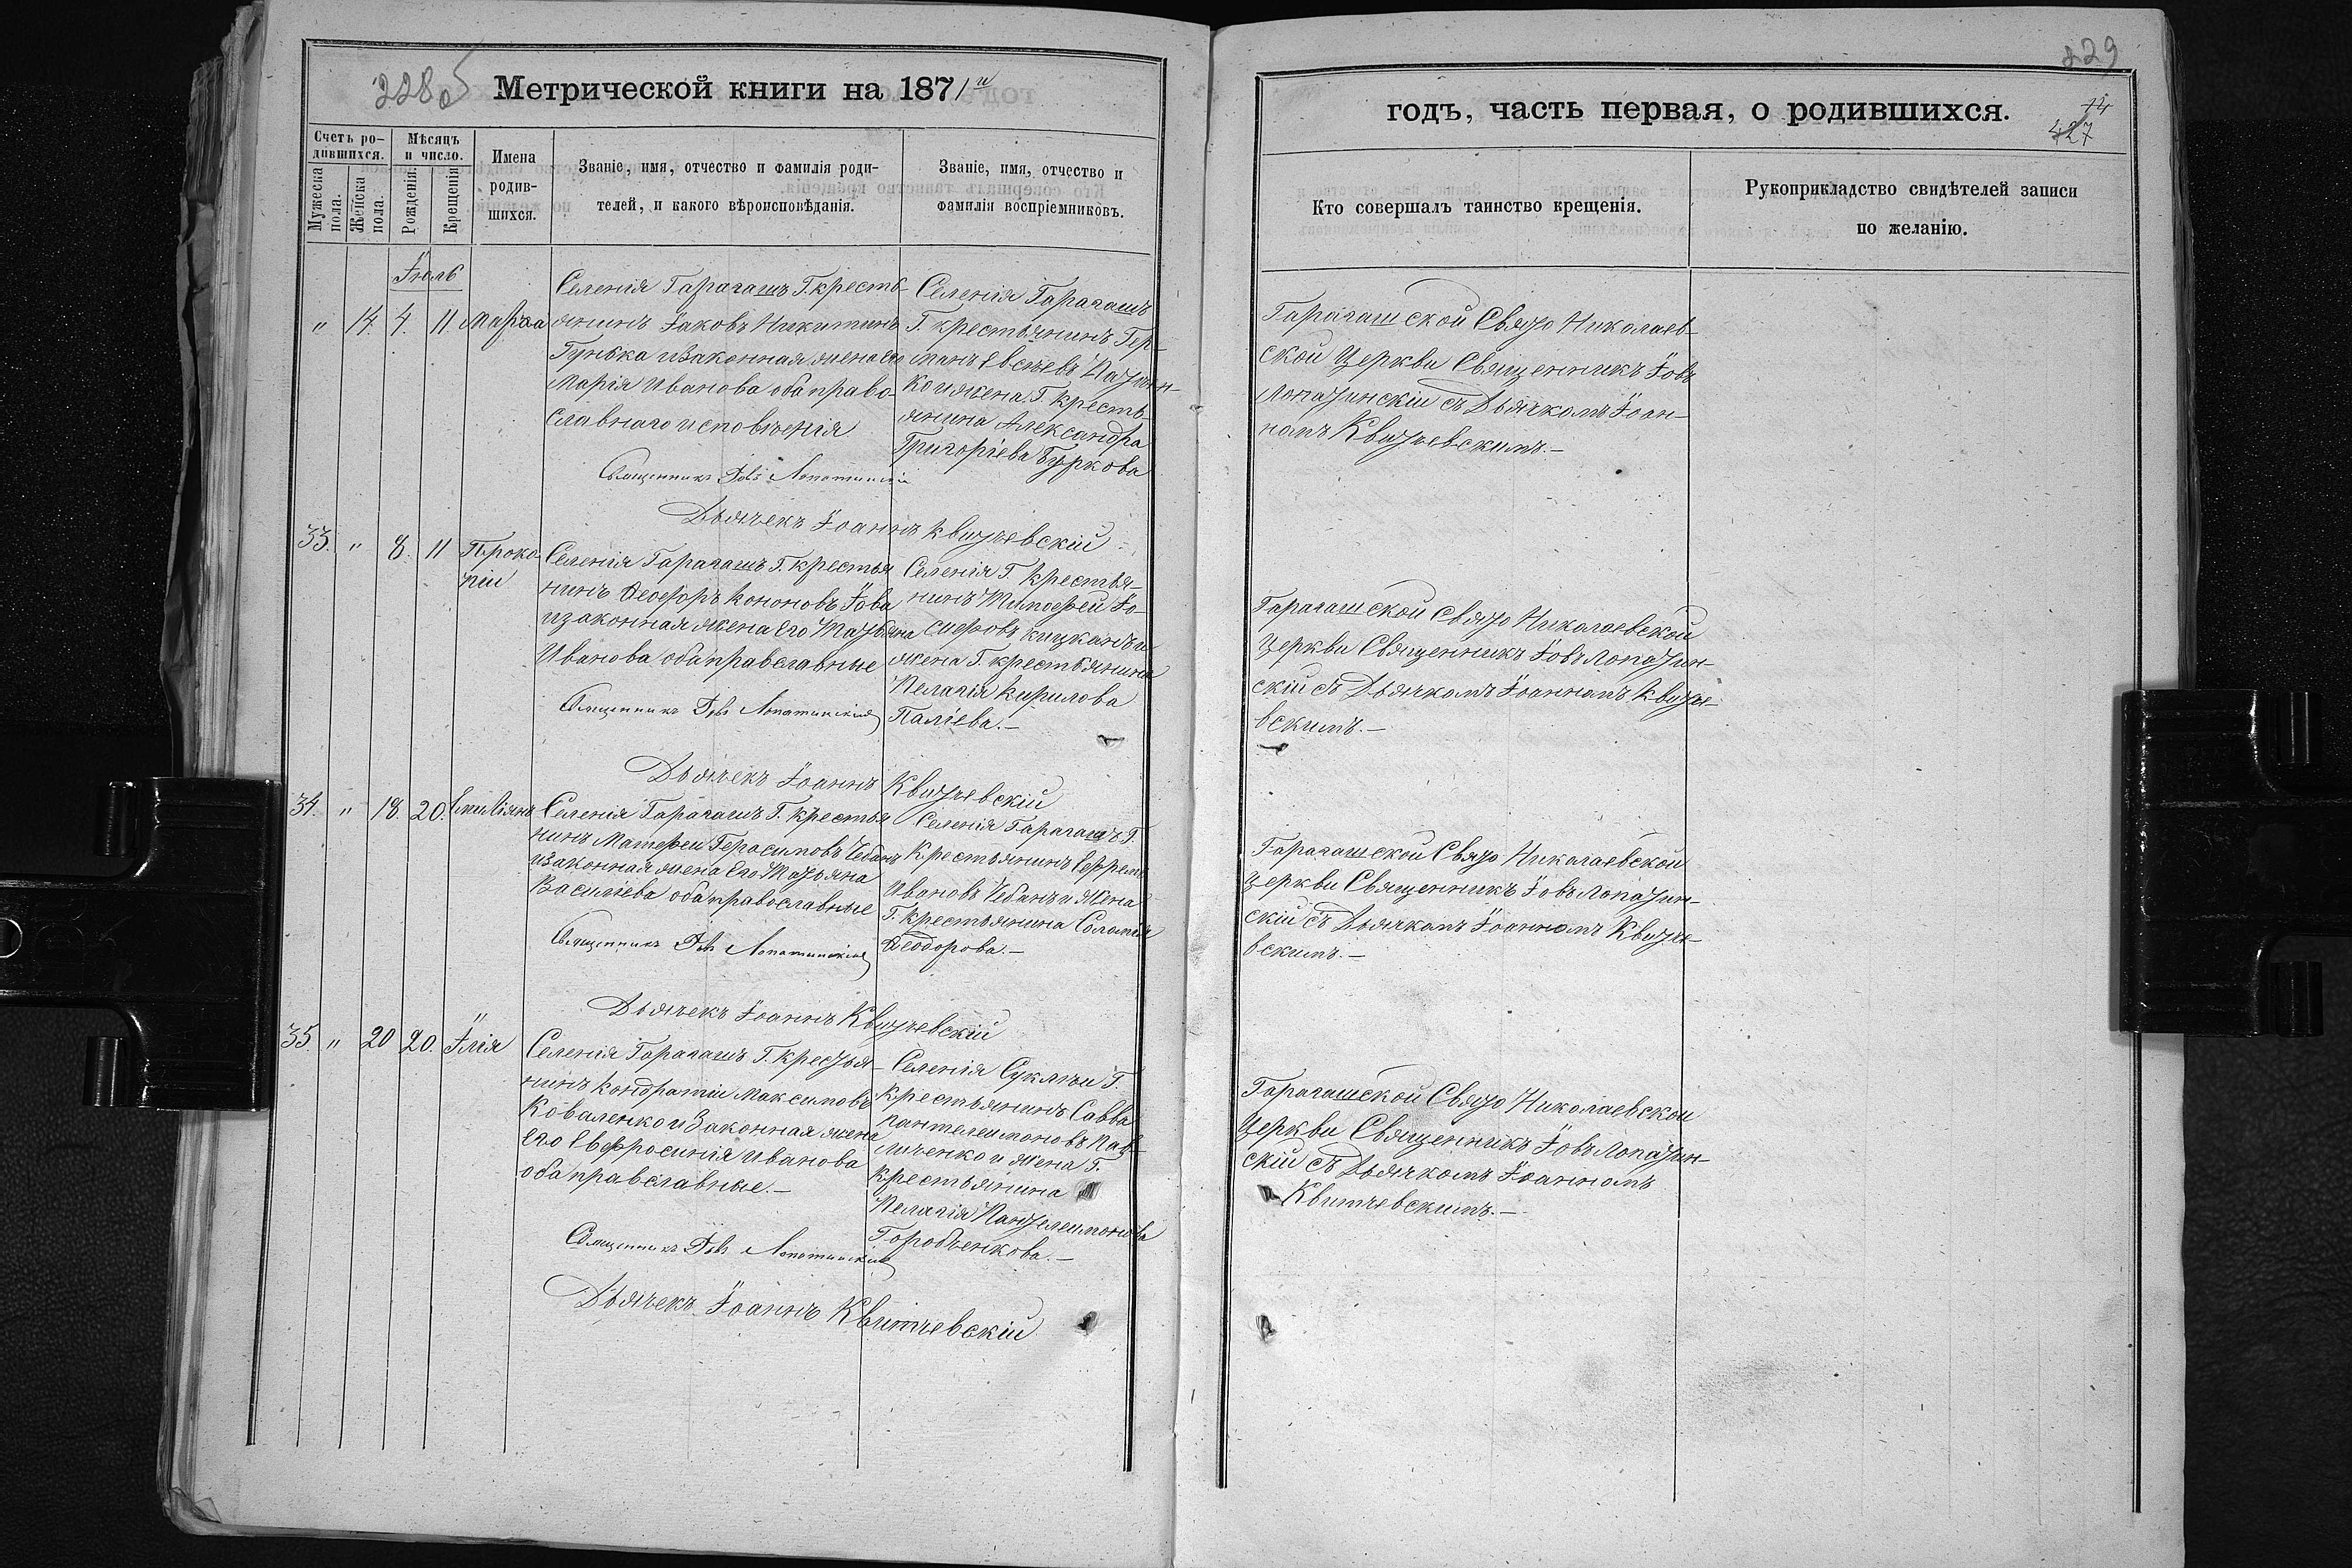 228 об
Метрической книги на 1871й
Счетъ ро-
дившихся.
Мѣсяцъ
и число.
Мужеска
пола.
Женска
пола.
Рожденія.
Крещенія.
Имена
родив-
шихся.
Званіе, имя, отчество и фамилія роди-
телей, и какого вѣроисповѣданія.
Званіе, имя, отчество и
фамилія воспріемниковъ.
Іюль
" 14. 4. 11 Марѳа
Селенія Гарагашъ Г. кресть-
янинъ Іаковъ Никитинъ
Гунька и Законная жена его
Марія Иванова оба право-
славнаго исповѣденія
Селенія Гарагашъ
Г. крестьянинъ Гер-
манъ Евсѣевъ
ко и жена Г. кресть-
янина Александра
Григоріева Буркова
Священникъ Іовъ Лопатинскій
Дьячекъ Іоаннъ Квитчевскій
33. " 8. 11 Проко-
пій
Селенія Гарагашъ Г. крестья
нинъ Ѳеодоръ Кононовъ Іова
и законная жена Его Татьяна
Иванова оба православные
Селенія Г. крестья-
нинъ Тимоѳей Іо-
сифовъ Кицканъ и
жена Г. крестьянина
Пелагія Кирилова
Паліева.-
Священникъ Іовъ Лопатинскій
Дьячекъ Іоаннъ Квитчевскій
34. " 18. 20. Емиліянъ
Селенія Гарагашъ Г. крестья
нинъ Матѳей Герасимовъ Чебанъ
и законная жена Его Татьяна
Василіева оба православные
Селенія Гарагашъ Г.
Крестьянинъ Ефремъ
Ивановъ Чебанъ и жена
Г. крестьянина Соломія
Ѳеодорова.-
Священникъ Іовъ Лопатинскій
Дьячекъ Іоаннъ Квитчевскій
35. " 20 20. Илія
Селенія Гарагашъ Г. крестья-
нинъ Кондратій Максимовъ
Коваленко и Законная жена
Его Евфросинія Иванова
оба православные.-
Селенія Суклеи Г.
Крестьянинъ Савва
Пантелеимоновъ Пав-
личенко и жена Г.
крестьянина
Пелагія Пантелеимонова
Горобченкова.-
Священникъ Іовъ Лопатинскій
Дьячекъ Іоаннъ Квитчевскій
229
14
427
годъ, часть первая, о родившихся.
Кто совершалъ таинство крещенія.
Рукоприкладство свидѣтелей записи
по желанію.
Гарагашской Свято Николаев-
ской Церкви Священникъ Іовъ
Лопатинскій съ Дьячкомъ Іоан-
номъ Квитчевскимъ.-
Гарагашской Свято Николаевской
Церкви Священникъ Іовъ Лопатин-
скій съ Дьячкомъ Іоанномъ Квитче-
вскимъ.-
Гарагашской Свято Николаевской
Церкви Священникъ Іовъ Лопатин-
скій съ Дьячкомъ Іоанномъ Квитче-
вскимъ.-
Гарагашской Свято Николаевской
Церкви Священникъ Іовъ Лопатин-
скій съ Дьячкомъ Іоанномъ
Квитчевскимъ.-